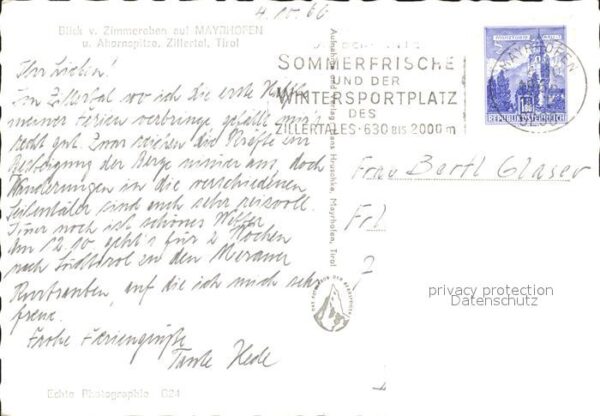 4.10.66
Blick v. Zimmereben auf MAYRHOFEN
u. Ahornspitze, Zillertal, Tirol
Ihr Lieben!
Im Zillertal wo ich die erste Hälfte
meiner Ferien verbringe gefällt mir's
recht gut. Zwar reichen die Kräfte zur
Besteigung der Berge nimmer aus, doch
Wanderungen in die verschiedenen
Seitentäler sind auch sehr reizvoll.
noch ist schönes Wetter
Am 12.10 geht's für 2 Wochen
nach Südtirol zu den Meraner
auf die ich mich sehr
freue.
Frohe Feriengrüße
Tante Hede
Echte Photographie. C24
Aufnahme und Verlag Hans Hruschka, Mayrhofen, Tirol
SOMMERFRISCHE
UND DER
WINTERSPORTPLATZ
DES
ZILLERTALES · 630 BIS 2000 m
MAYRHOFEN
REPUBLIK ÖSTERREICH
Frau Bertl Glaser
privacy protection
Datenschutz